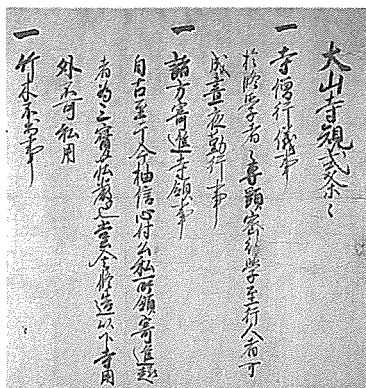 大山寺規式条々
一 寺僧行儀事
於修学者、専顕密修学、至行人者可
成昼夜勤行事
一 諸方寄進寺領事
自古至于今抽信心付公私所領寄進趣
者為三宝荘厳也堂舎修造以下寺用
外不可私用
一 竹木